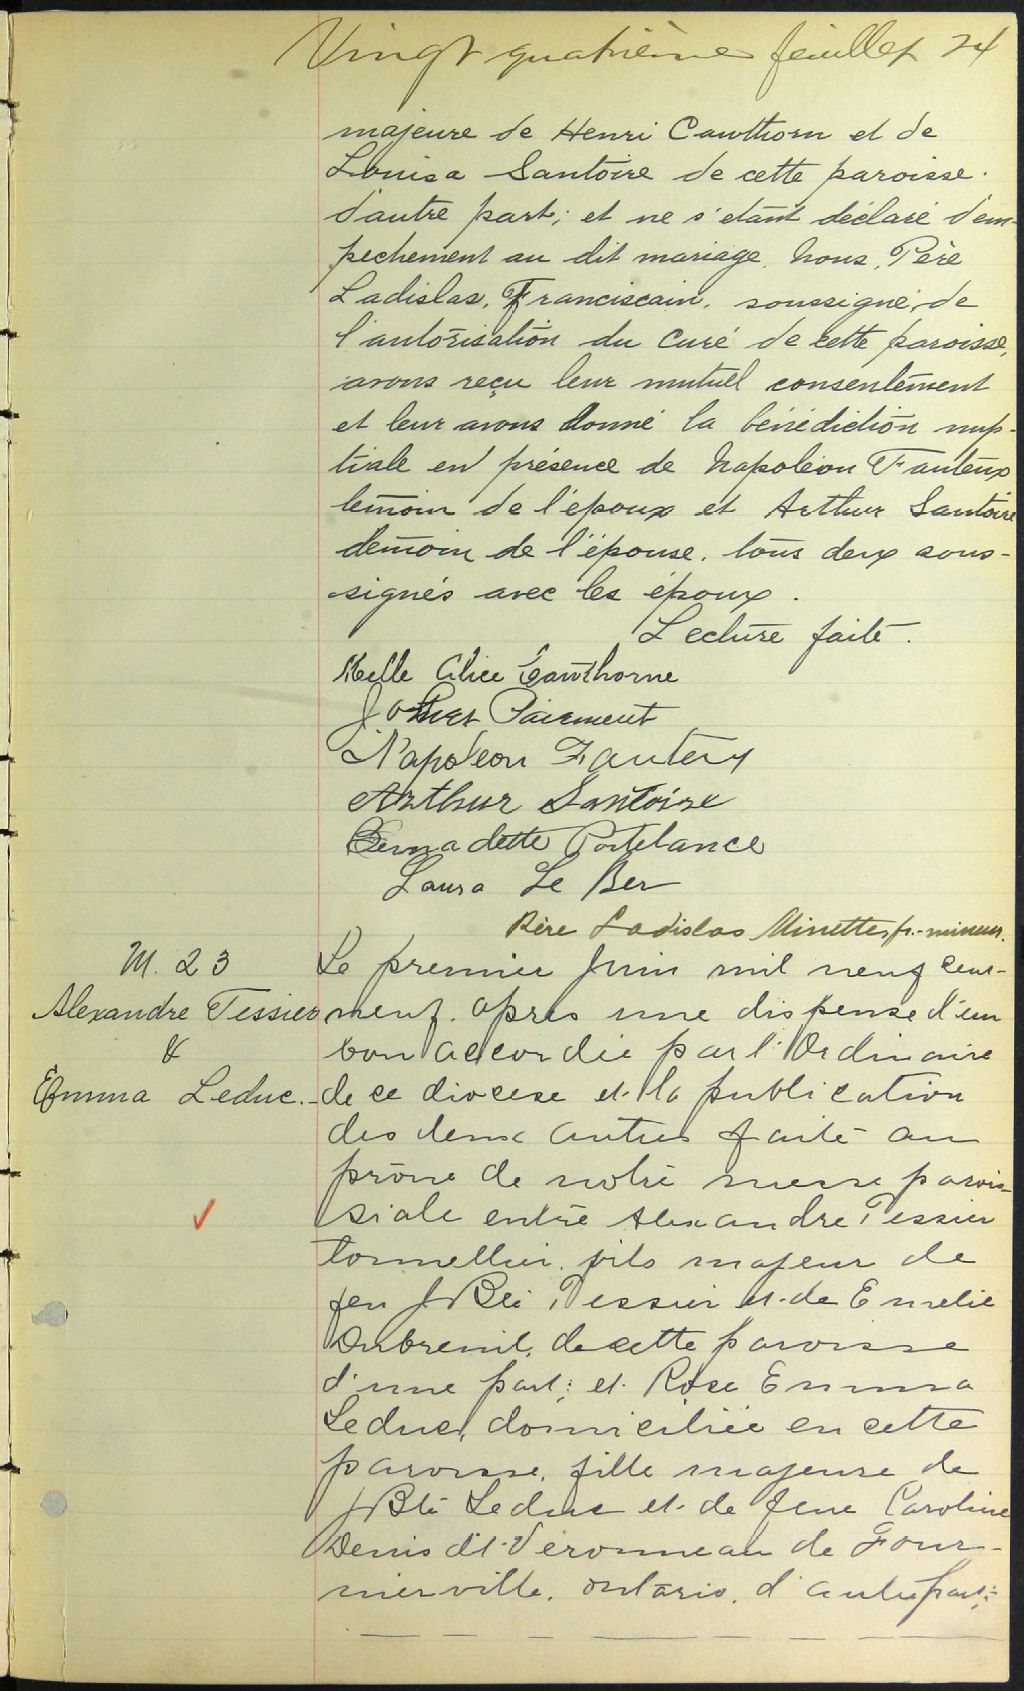 Vingt quatrième feuillet 24
majeure de Henri Cawthorn et de
Louisa Santoire de cette paroisse.
d'autre part; et ne s'étant déclaré d'em-
pechement au dit mariage. Nous, Père
Ladislas, Franciscain, soussigné, de
l'autorisation du curé de cette paroisse,
avons reçu leur mutuel consentement
et leur avons donné la bénédiction nup-
tiale en présence de Napoléon Fauteux
témoin de l'époux et Arthur Santoire
temoin de l'épouse. tous deux sous-
signés avec les époux.
Lecture faite.
Melle Alice Cawthorne
Paiement
Napoleon Fauteux
Arthur Santoire
Bernadette Portelance
Laura Le Ber
Père Ladislas Minette, fr. mineur.
M. 23
Alexandre Tessier
&
Emma Leduc.
Le premier Juin mil neuf cent-
neuf. après une dispense d'un
ban accordée par l'Ordinaire
de ce diocese et la publication
des deux autres faite au
prône de notre messe parois-
siale entre Alexandre Tessier
tonnellier. fils majeur de
feu J Bte Tessier et de Emelie
Dubreuil, de cette paroisse
d'une part; et Rose Emma
Leduc, domiciliée en cette
paroisse, fille majeure de
J Bte Leduc et de feue Caroline
Denis dit Véronneau de Four-
nierville. Ontario. d'autre part;